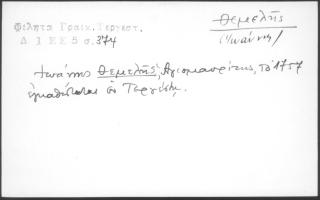 Φίλητα Γραικ. Τεργεστ.
Δ 1 ΕΕ 5 σ. 374
Θεμελῆς
(Ἰωάννης)
Ἰωάννης Θεμελῆς, Ἁγιομαυρίτης, τὸ 1757
ἐγκαθίσταται ἐν Τεργέστῃ.